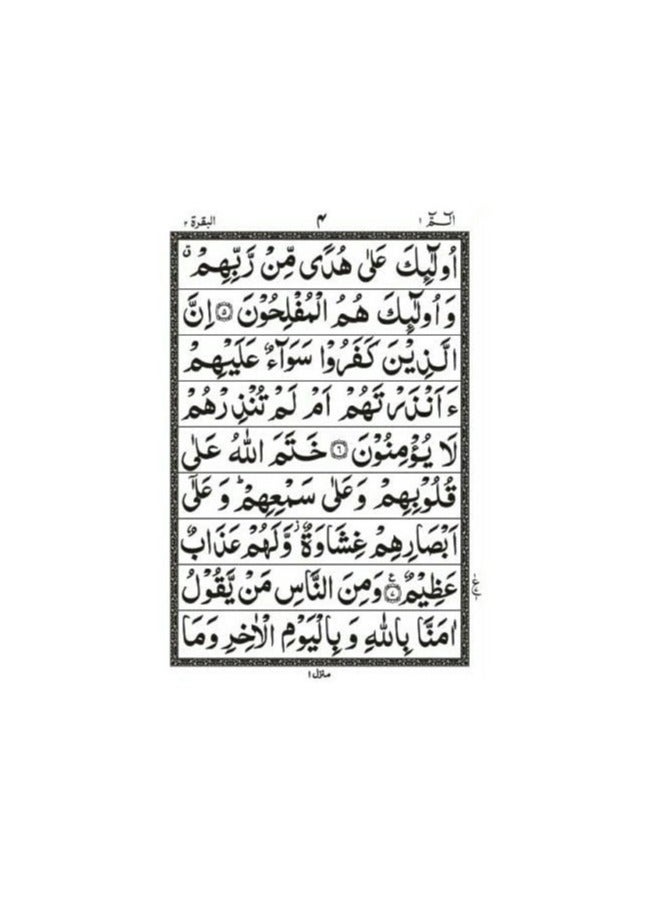 الٓـمّٓ ١ ۴ البقرة ٢
اُولٰٓئِكَ عَلٰى هُدًى مِّنْ رَّبِّهِمْ ۙ
وَ اُولٰٓئِكَ هُمُ الْمُفْلِحُوْنَ ۝٥ اِنَّ
الَّذِيْنَ كَفَرُوْا سَوَآءٌ عَلَيْهِمْ
ءَاَنْذَرْتَهُمْ اَمْ لَمْ تُنْذِرْهُمْ
لَا يُؤْمِنُوْنَ ۝٦ خَتَمَ اللّٰهُ عَلٰى
قُلُوْبِهِمْ وَعَلٰى سَمْعِهِمْ ؕ وَ عَلٰٓى
اَبْصَارِهِمْ غِشَاوَةٌ ؗ وَّلَهُمْ عَذَابٌ
عَظِيْمٌ ۝ ع وَمِنَ النَّاسِ مَنْ يَّقُوْلُ
اٰمَنَّا بِاللّٰهِ وَ بِالْيَوْمِ الْاٰخِرِ وَمَا
منزل ١